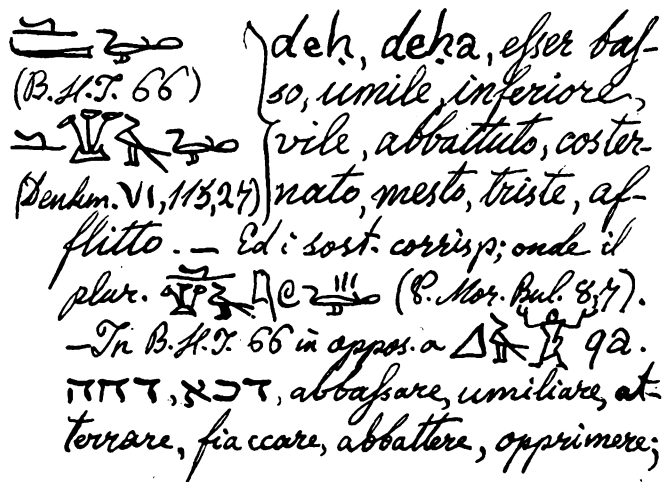 deḥ, deḥa, eſser baſ-
(B.H.T. 66) so, umile, inferiore,
vile, abbattuto, coster-
(Denkm. VI, 115, 27) nato, mesto, triste, af-
flitto. — Ed i sost. corrisp; onde il
plur. (P. Mor. Bul. 8,7).
—In B.H.T. 66 in oppos. a qa.
דכא, דחה, abbaſsare, umiliare, at-
terrare, fiaccare, abbattere, opprimere;